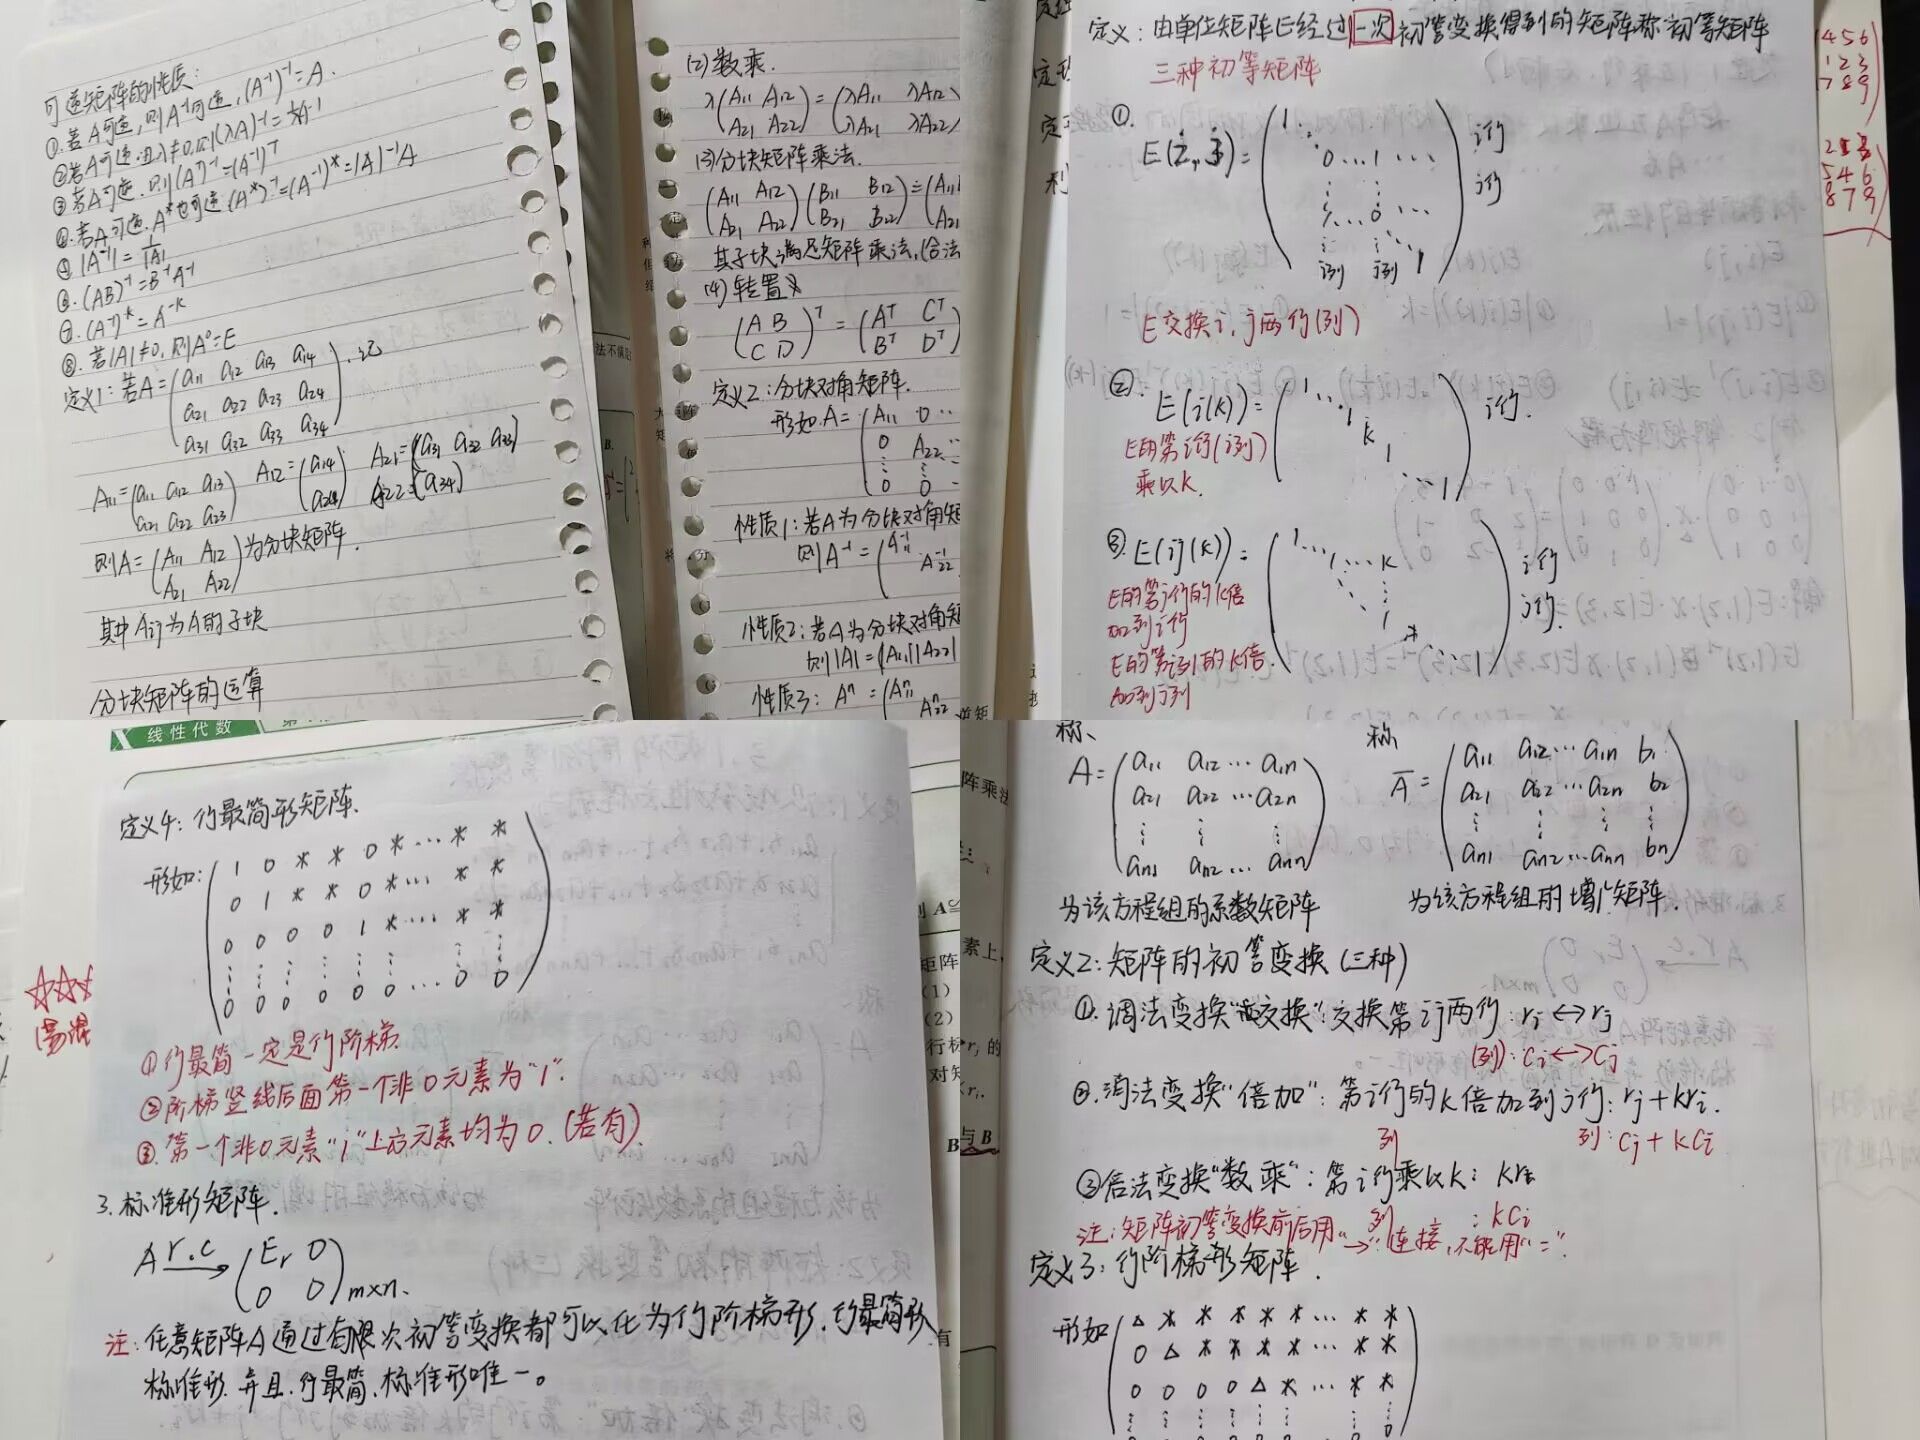 可逆矩阵的性质:
①.若A可逆,则A⁻¹可逆,(A⁻¹)⁻¹=A.
②若A可逆.且λ≠0,则(λA)⁻¹=1/λ A⁻¹
③若A可逆.则(Aᵀ)⁻¹=(A⁻¹)ᵀ
④.若A可逆.A*也可逆(A*)⁻¹=(A⁻¹)*=|A|⁻¹A
|A⁻¹|=1/|A|
(AB)⁻¹=B⁻¹A⁻¹
⑦.(A⁻¹)ᵏ=A⁻ᵏ
⑧.若|A|≠0,则A⁰=E
定义1:若A=(a11 a12 a13 a14 ,记
a21 a22 a23 a24
a31 a32 a33 a34)
A11=(a11 a12 a13 A12=(a14 A21=(a31 a32 a33)
a21 a22 a23) a24) A22=(a34)
则A=(A11 A12 为分块矩阵.
A21 A22)
其中Aij为A的子块
分块矩阵的运算
(2)数乘.
λ(A11 A12 = (λA11 λA12
A21 A22) λA21 λA22)
(3)分块矩阵乘法.
(A11 A12 (B11 B12 = (A11
A21 A22) B21 B22) A21
其子块满足矩阵乘法,(合法
(4)转置
(A B ᵀ = (Aᵀ Cᵀ
C D) Bᵀ Dᵀ)
定义2:分块对角矩阵.
形如.A=(A11 0 ‥
0 A22 ‥
⋮ ⋮
0 0
性质1:若A为分块对角矩
则A⁻¹=(A11⁻¹
A22⁻¹
性质2:若A为分块对角矩
则|A|=|A11||A22|
性质3: Aⁿ=(A11ⁿ
A22ⁿ
定义:由单位矩阵E经过一次初等变换得到的矩阵称初等矩阵
三种初等矩阵
①.
E(i,j)=(1 i行
0…1 … j行
⋮ ⋮
1 … 0 …
⋮ ⋮
i列 j列 1)
E交换i,j两行(列)
②.
E(i(k))=(1 ⋱ 1 k 1 ⋱ 1) i行.
E的第i行(i列)
乘以k.
③. E(ij(k))=(1 ⋱ 1 … k i行
⋮
1 j行.
E的第j行的k倍
加到i行
E的第i列的k倍
加到j列
4 5 6
1 2 3
7 8 9
5 4 6
8 7 9
线性代数
定义4:行最简形矩阵.
形如:(1 0 * * 0 * … * *
0 1 * * 0 * … * *
0 0 0 0 1 * … * *
⋮ ⋮ ⋮ ⋮ ⋮ ⋮ ⋮
0 0 0 0 0 0 … 0 0)
☆☆☆
易混
①行最简一定是行阶梯.
②阶梯竖线后面第一个非0元素为"1".
③.第一个非0元素"1"上方元素均为0.(若有)
3.标准形矩阵.
A r.c→ (Er 0
0 0)m×n.
注:任意矩阵A通过有限次初等变换都可以化为行阶梯形.行最简形
标准形.并且.行最简.标准形唯一。
称、 称
A=(a11 a12 … a1n A̅=(a11 a12 … a1n b1
a21 a22 … a2n a21 a22 … a2n b2
⋮ ⋮ ⋮ ⋮ ⋮ ⋮ ⋮
an1 an2 … ann) an1 an2 … ann bn)
为该方程组的系数矩阵 为该方程组的增广矩阵.
定义2:矩阵的初等变换(三种)
①.调法变换"交换":交换第ij两行:ri↔rj
(列):ci↔cj
②.消法变换"倍加":第i行的k倍加到j行:rj+kri.
列 列:cj+kci
③倍法变换"数乘":第i行乘以k:kri
列 :kci
注:矩阵初等变换前后用"→"连接,不能用"=".
定义3:行阶梯形矩阵.
形如(△ * * * * * … * *
0 △ * * * * … * *
0 0 0 0 △ * … * *
⋮ ⋮ ⋮ ⋮ ⋮ ⋮ ⋮